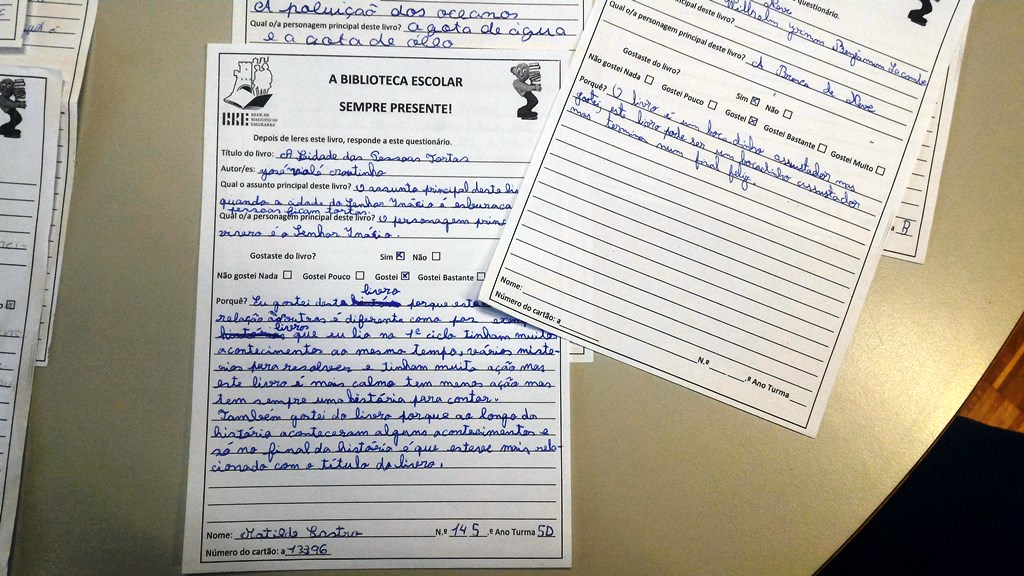 A poluição dos oceanos
Qual o/a personagem principal deste livro? A gota de água
e a gota de óleo
A BIBLIOTECA ESCOLAR
SEMPRE PRESENTE!
REDE DE
BIBLIOTECAS
ESCOLARES
Depois de leres este livro, responde a este questionário.
Título do livro: A Cidade das Pessoas Tortas
Autor/es: José
Qual o assunto principal deste livro? O assunto principal deste li
quando a cidade do Senhor Inácio é esburaca
pessoas ficam tortas.
Qual o/a personagem principal deste livro? O personagem princ
é o Senhor Inácio.
Gostaste do livro? Sim Não
Não gostei Nada Gostei Pouco Gostei Gostei Bastante
livro
Porquê? Eu gostei deste história porque este
relação às outras é diferente como por exemp
livros
histórias que eu lia no 1º ciclo tinham muitos
acontecimentos ao mesmo tempo, vários misté-
rios para resolver e tinham muita ação mas
este livro é mais calmo tem menos ação mas
tem sempre uma história para contar.
Também gostei do livro porque ao longo da
história aconteceram alguns acontecimentos e
só no final da história é que esteve mais rela-
cionado com o título do livro.
Nome: Matilde Castro N.º 145 .º Ano Turma 5D
Número do cartão: a 13396
questionário.
Wilhelm Grimm Benjamim Lacombe
Qual o/a personagem principal deste livro? A Branca de Neve
Gostaste do livro? Sim Não
Não gostei Nada Gostei Pouco Gostei Gostei Bastante Gostei Muito
Porquê? O livro é um bocadinho assustador mas
gostei, este livro pode ser um bocadinho assustador
mas termina num final feliz.
Nome:
Número do cartão: a
N.º .º Ano Turma
a B